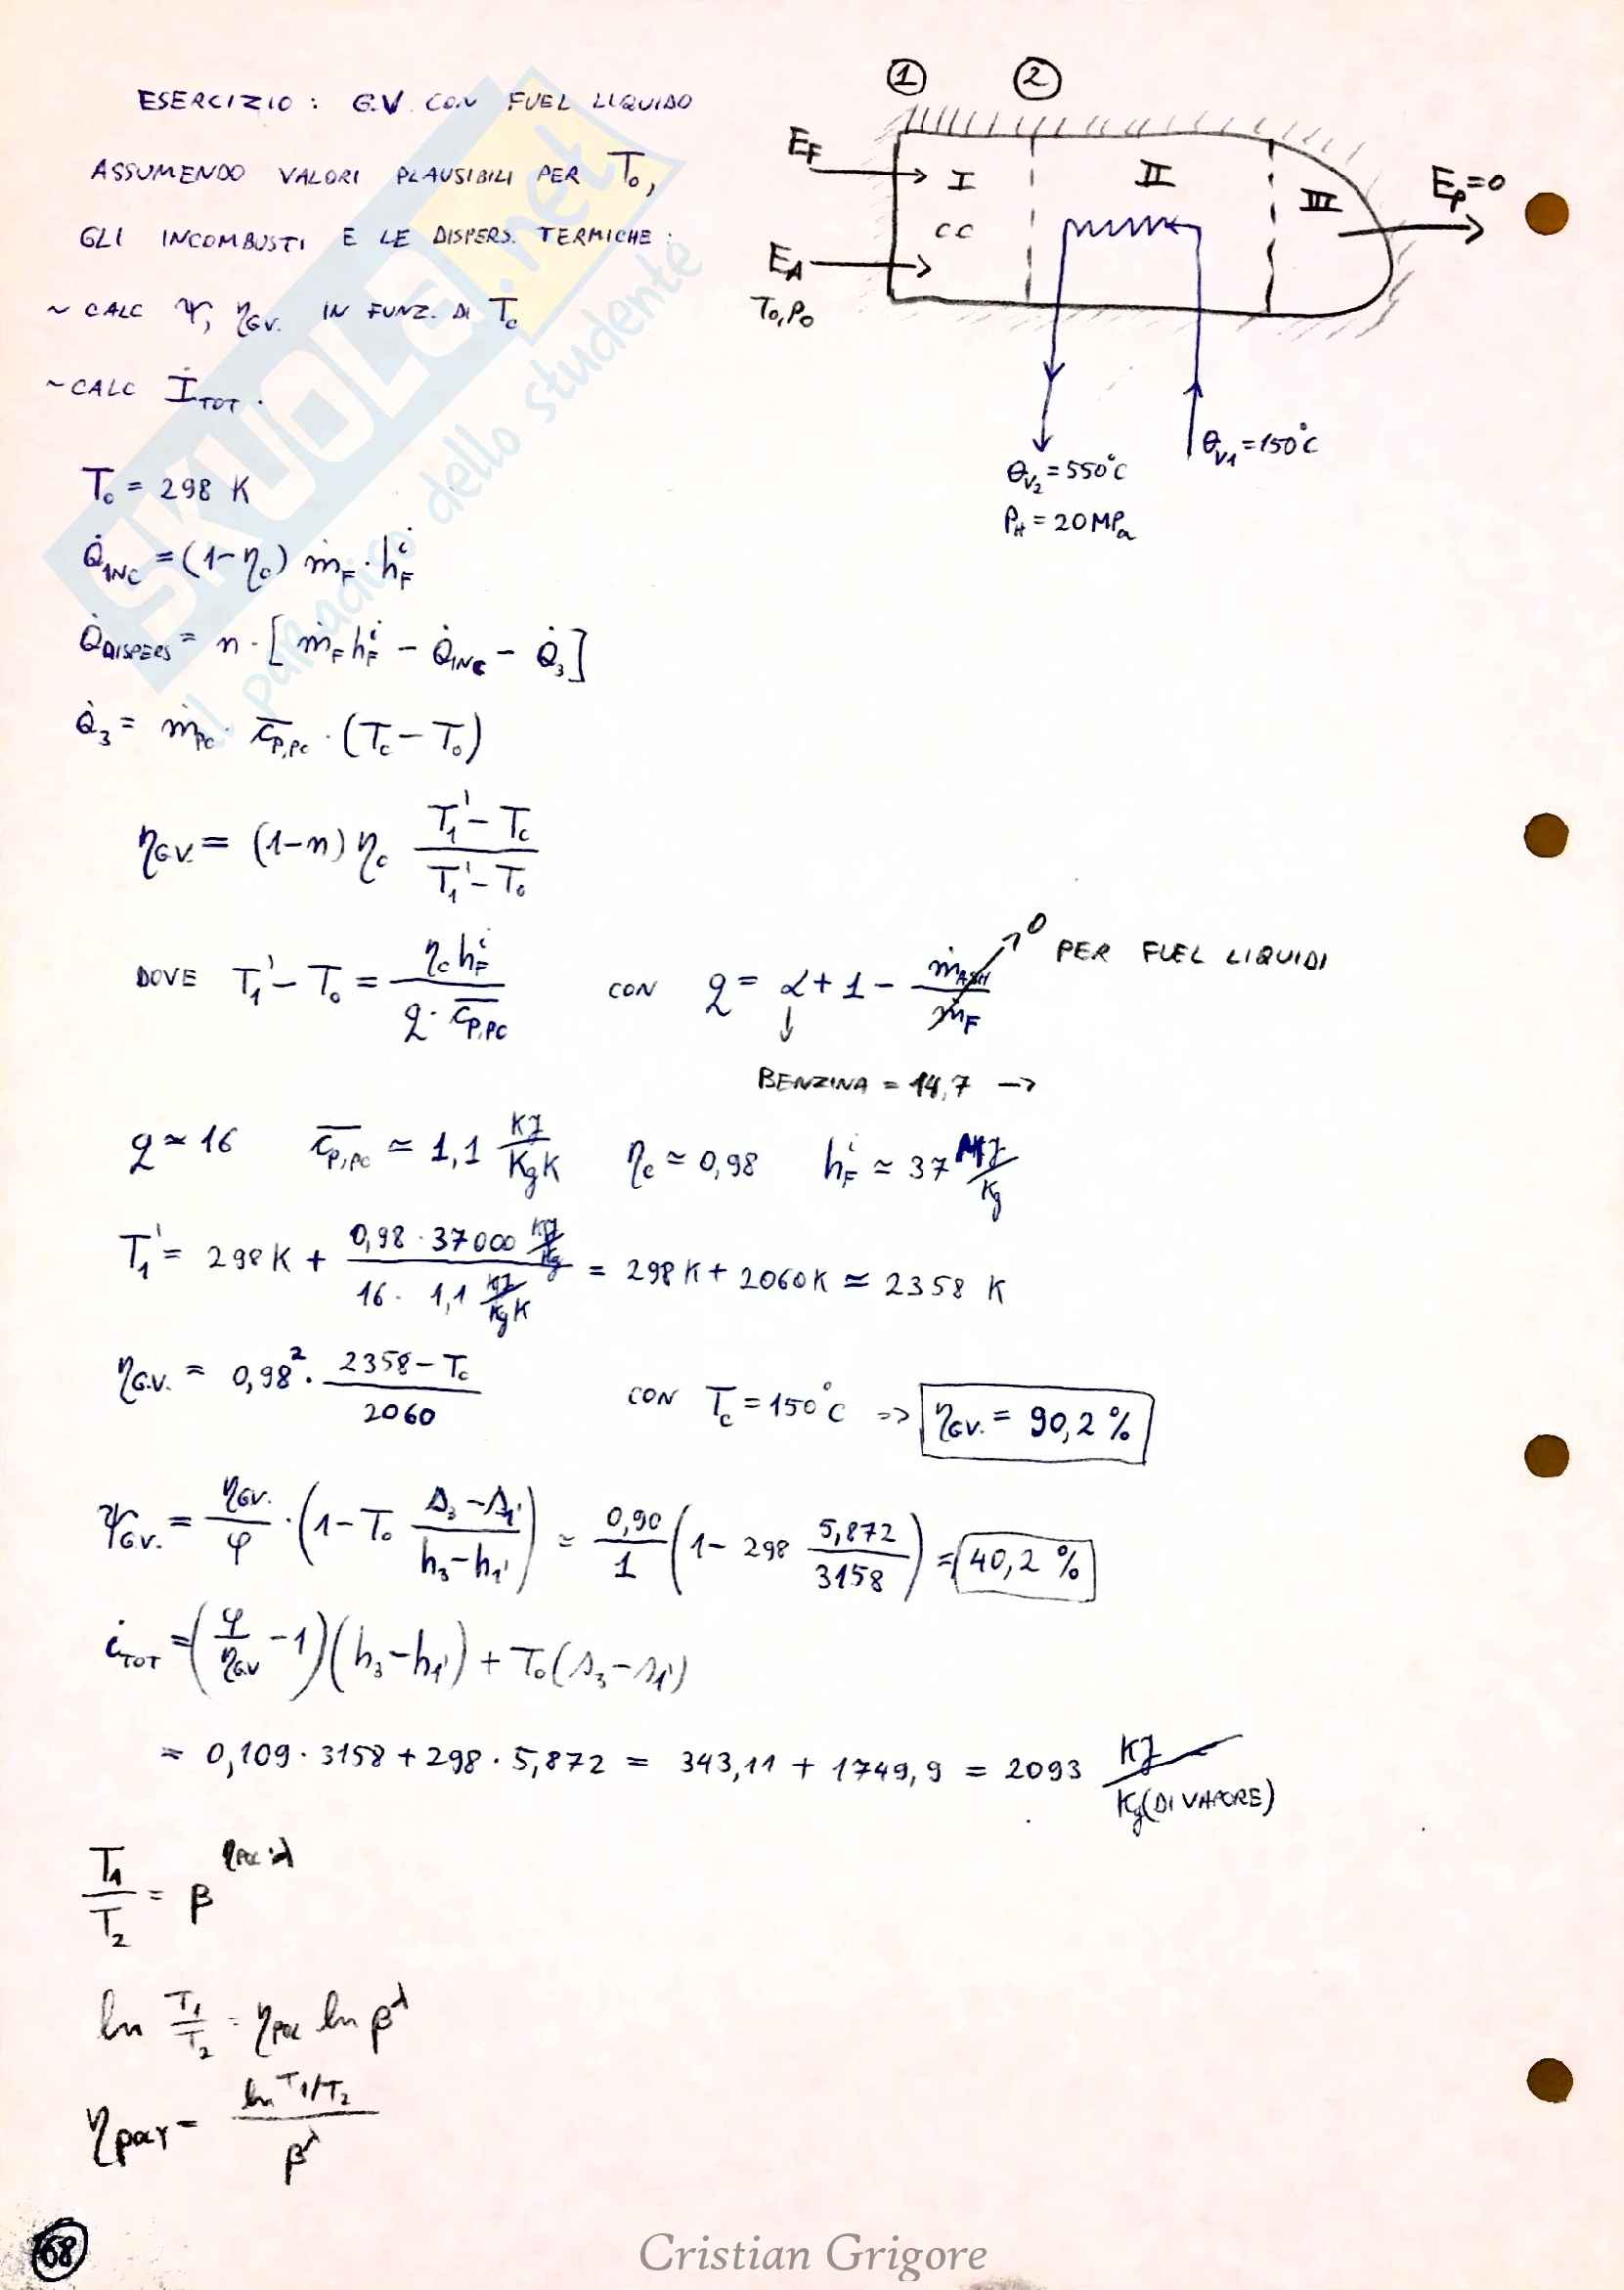 ESERCIZIO : G.V. CON FUEL LIQUIDO
ASSUMENDO VALORI PLAUSIBILI PER T₀,
GLI INCOMBUSTI E LE DISPERS. TERMICHE :
~ CALC Ψ, η_GV. IN FUNZ. DI T_c
~ CALC İ_TOT .
① ②
E_F
I
CC
II
III
E_P=0
E_A
T₀, P₀
θ_V2 = 550°C
P_H = 20 MPa
θ_V1 = 150°C
T₀ = 298 K
Q̇_INC = (1-η_c) ṁ_F · h_F^i
Q̇_DISPERS = n · [ ṁ_F h_F^i - Q̇_INC - Q̇_3 ]
Q̇_3 = ṁ_PC · c̅_P,PC · (T_c - T₀)
η_G.V. = (1-n) η_c (T₁' - T_c)/(T₁' - T₀)
DOVE T₁' - T₀ = η_c h_F^i / (q · c̅_P,PC) CON q = α + 1 - ṁ_ASH/ṁ_F → 0 PER FUEL LIQUIDI
BENZINA = 14,7 →
q ≃ 16 c̅_P,PC ≃ 1,1 KJ/KgK η_c ≃ 0,98 h_F^i ≃ 37 MJ/Kg
T₁' = 298 K + (0,98 · 37000 KJ/Kg)/(16 · 1,1 KJ/KgK) = 298 K + 2060 K ≃ 2358 K
η_G.V. = 0,98² · (2358 - T_c)/2060 CON T_c = 150°C => η_GV. = 90,2 %
Ψ_G.V. = η_GV./φ · (1 - T₀ (s₃ - s₁')/(h₃ - h₁')) = 0,90/1 (1 - 298 5,872/3158) = 40,2 %
i_TOT = (φ/η_GV - 1)(h₃ - h₁') + T₀ (s₃ - s₁')
= 0,109 · 3158 + 298 · 5,872 = 343,11 + 1749,9 = 2093 KJ/Kg(DI VAPORE)
T₁/T₂ = β^(η_POL·λ)
ln T₁/T₂ = η_POL ln β^λ
η_pol = ln T₁/T₂ / β^λ
68
Cristian Grigore
SKUOLA.net
il paradiso dello studente